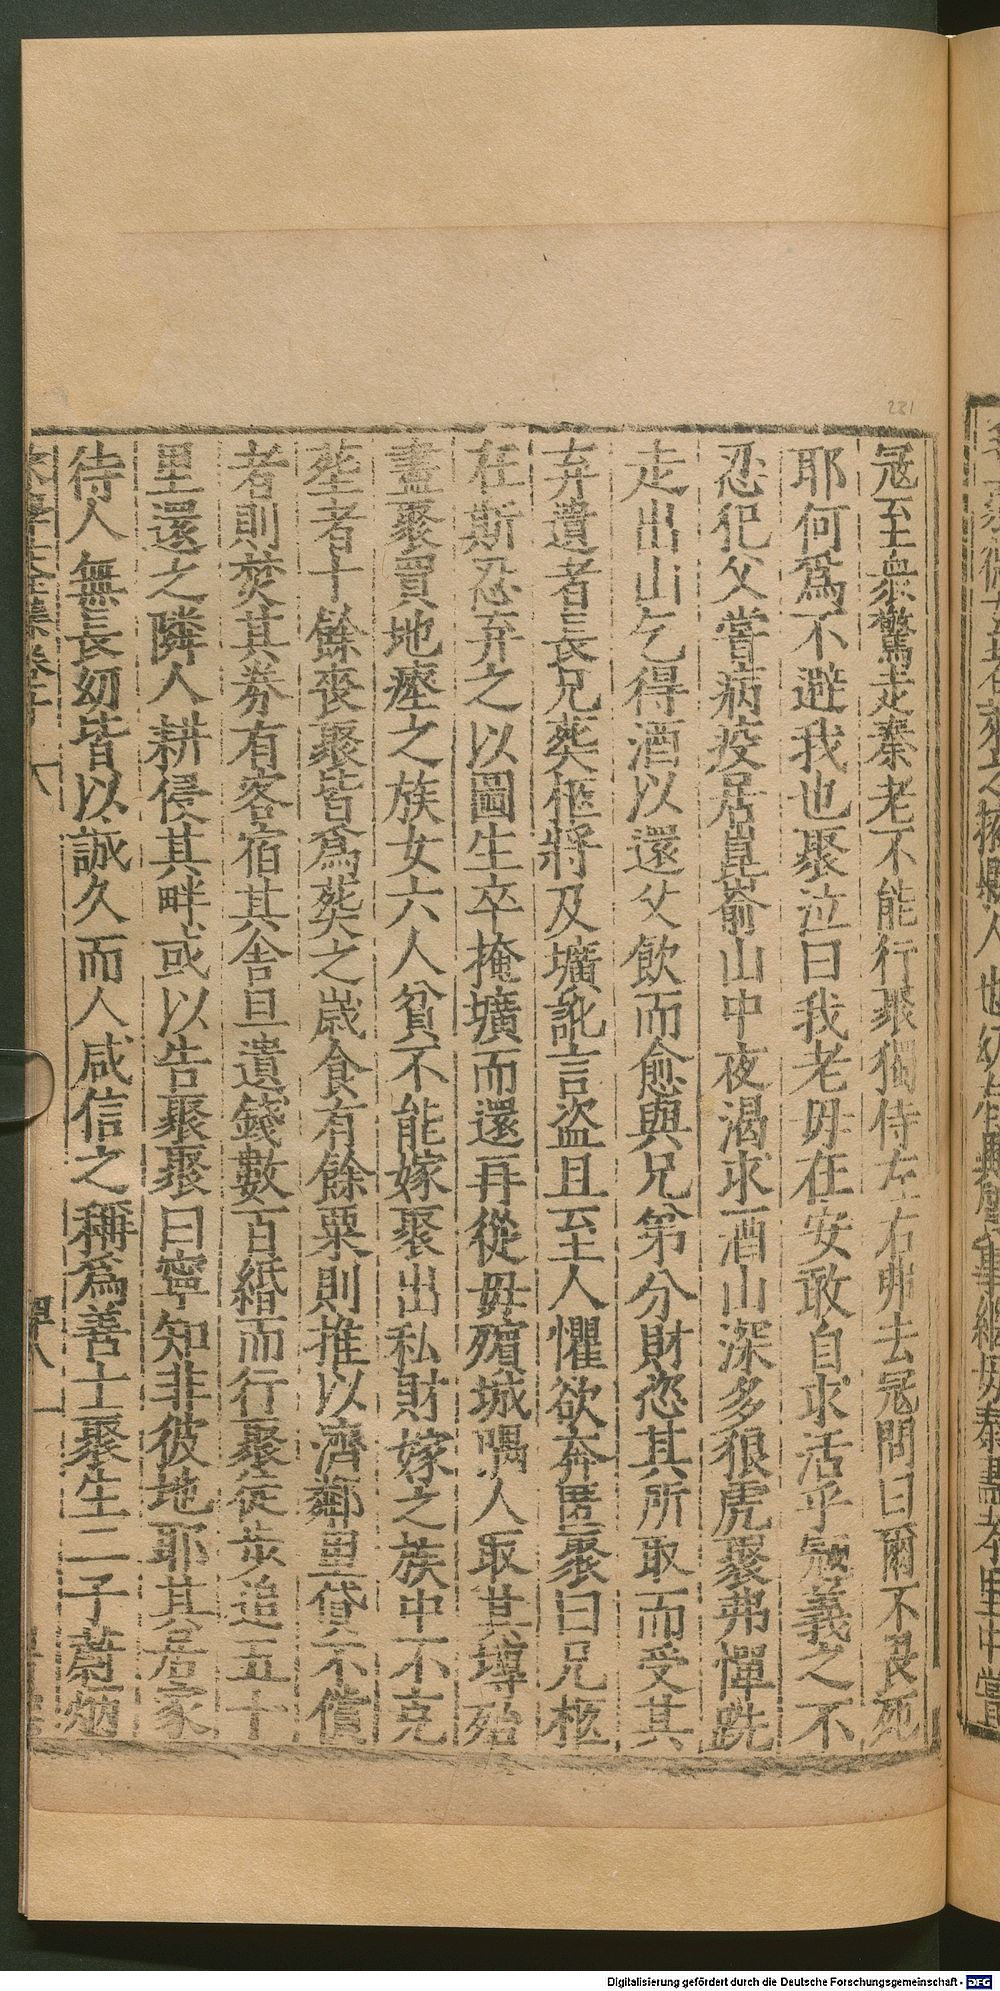 冦至衆驚走秦老不能行聚獨侍左右弗去冦問曰爾不畏死
耶何爲不避我也聚泣曰我老母在安敢自求活乎冦義之不
忍犯父嘗病疫居崑崙山中夜渴求酒山深多狼虎聚弗憚跣
走出山乞得酒以還父飲而愈與兄弟分財恣其所取而受其
弃遺者長兄葬柩將及壙訛言盗且至人懼欲奔匿聚曰兄柩
在斯忍弃之以圖生卒掩壙而還再從毋殯城隅人取其塼殆
盡聚買地瘞之族女六人貧不能嫁聚出私財嫁之族中不克
塟者十餘喪聚皆爲葬之嵗食有餘粟則推以濟鄰里貸不償
者則焚其券有客宿其舎旦遺錢數百緡而行聚徒步追五十
里還之隣人耕侵其畔或以告聚聚曰寧知非彼地耶其居家
待人無長㓜皆以誠久而人咸信之稱爲善士聚生二子蔚炳
231
Digitalisierung gefördert durch die Deutsche Forschungsgemeinschaft - DFG